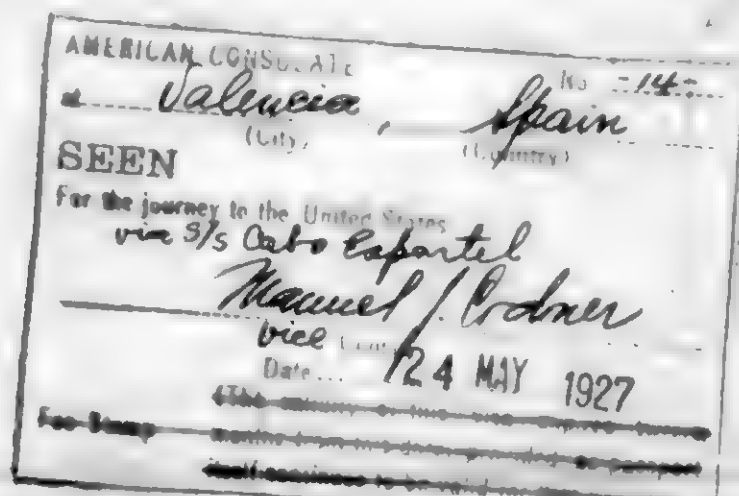 AMERICAN CONSULATE No. -14-
at Valencia, Spain
(City) (Country)
SEEN
For the journey to the United States
via S/s Cabo Espartel
Manuel J. Codoner
Vice Consul
Date... 24 MAY 1927
Fee Stamp